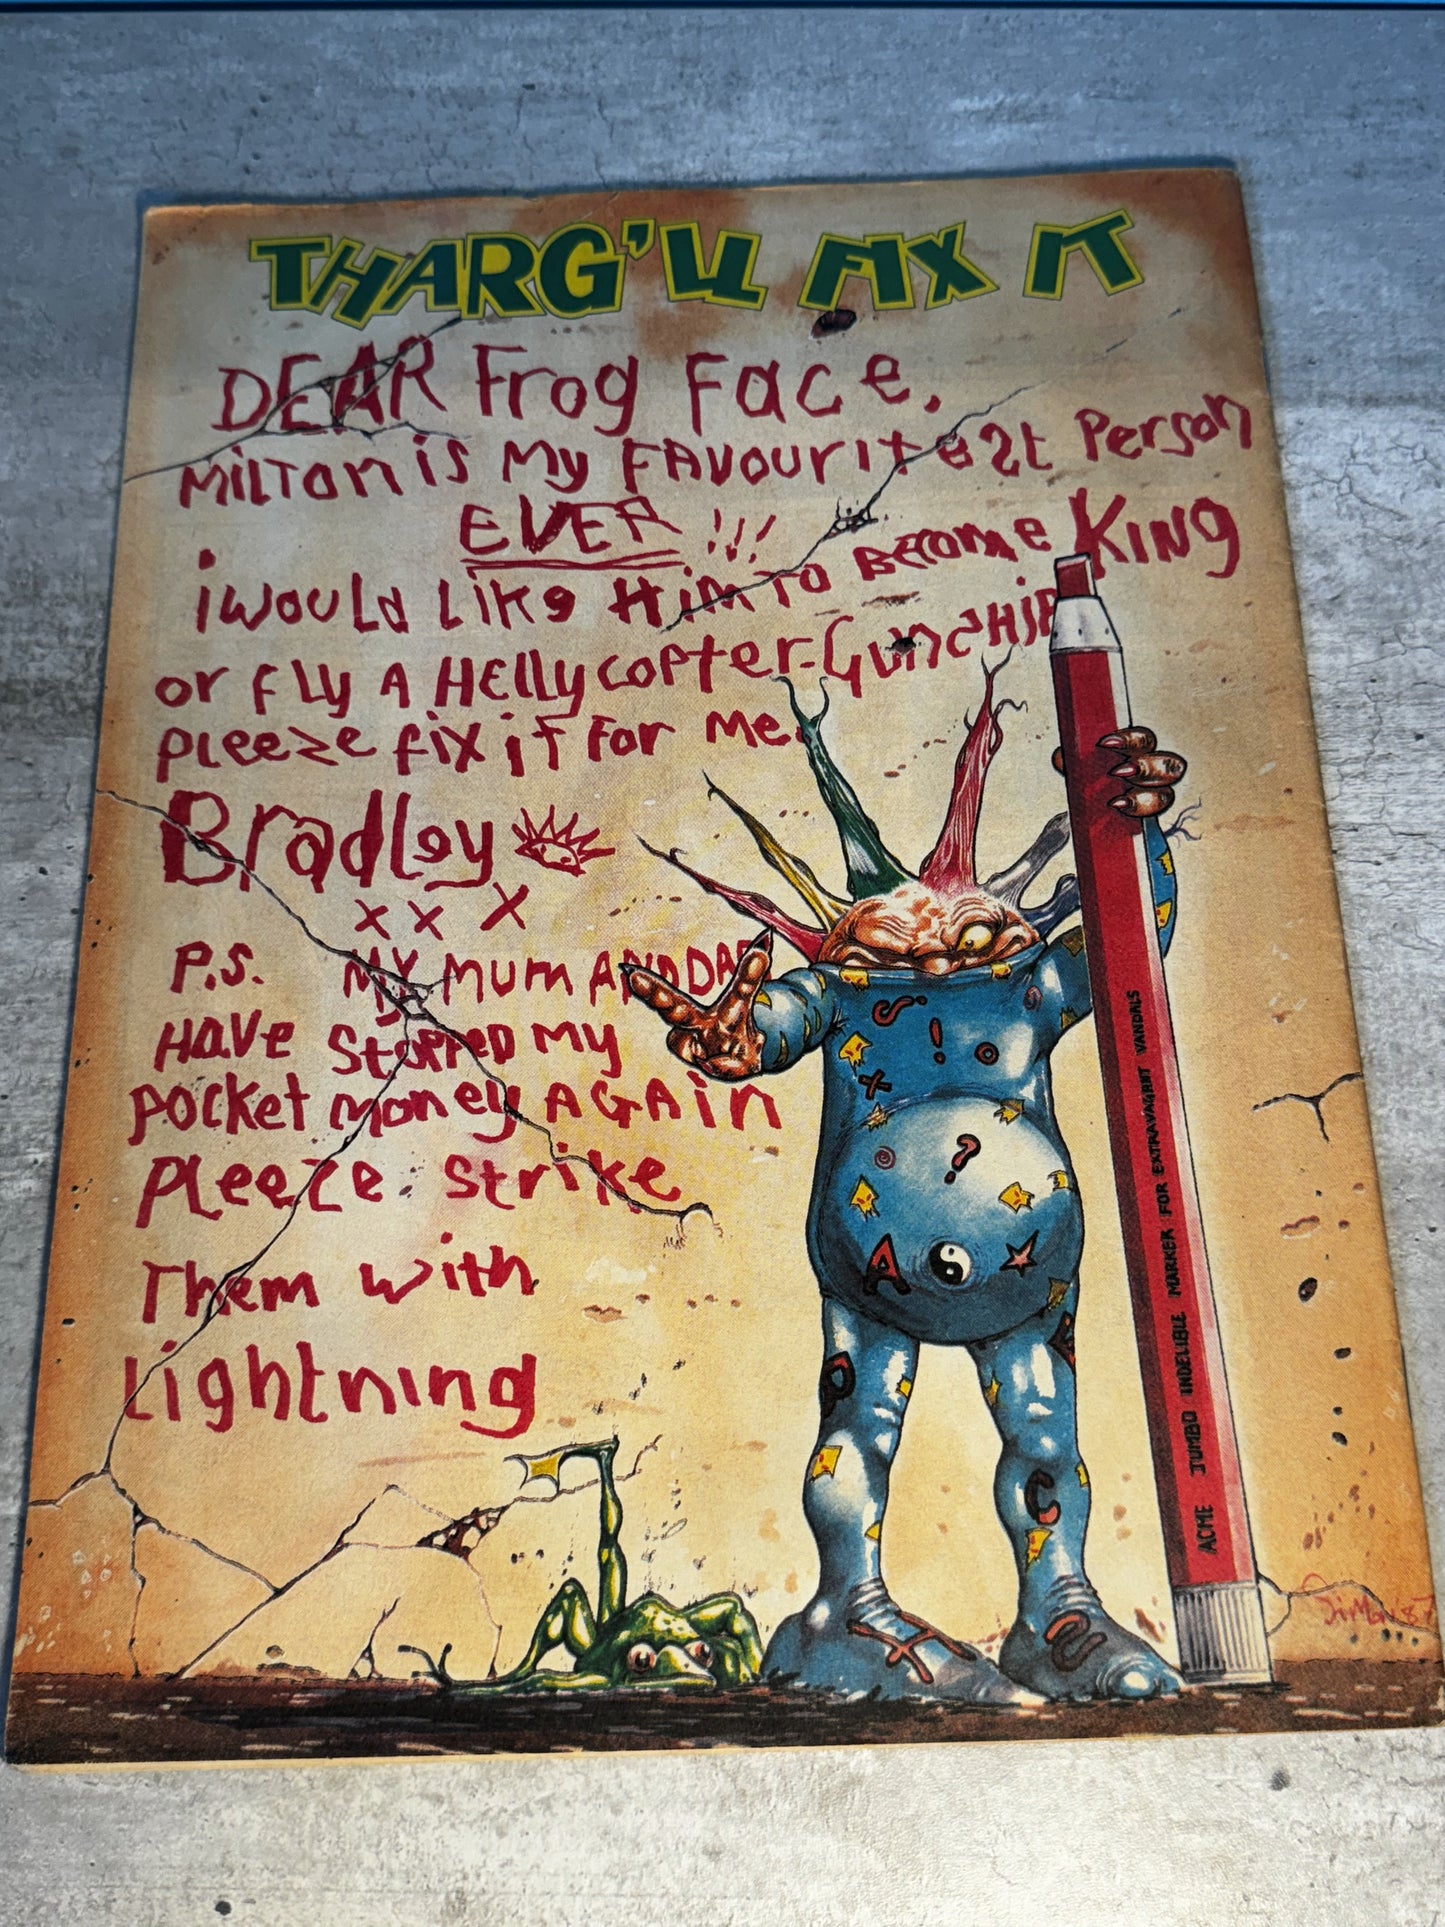 THARG'LL FIX IT
DEAR Frog Face,
MILTON is My FAVOURITEEST Person
EVER!!!
i WOULD LIKE HiM TO BECOME KING
or FLY A HELLYCOPTER-GUNSHIP
PLEEZE FIX iT FOR Me.
Bradley
x x x
P.S. MY MUM AND DAD
HAVE STOPPED MY
POCKET MONEY AGAin
PLeeZe Strike
THem with
Lightning
ACME JUMBO INDELIBLE MARKER FOR EXTRAVAGANT VANDALS
S ! X ?
A
B E
C
X N
SiMon 87